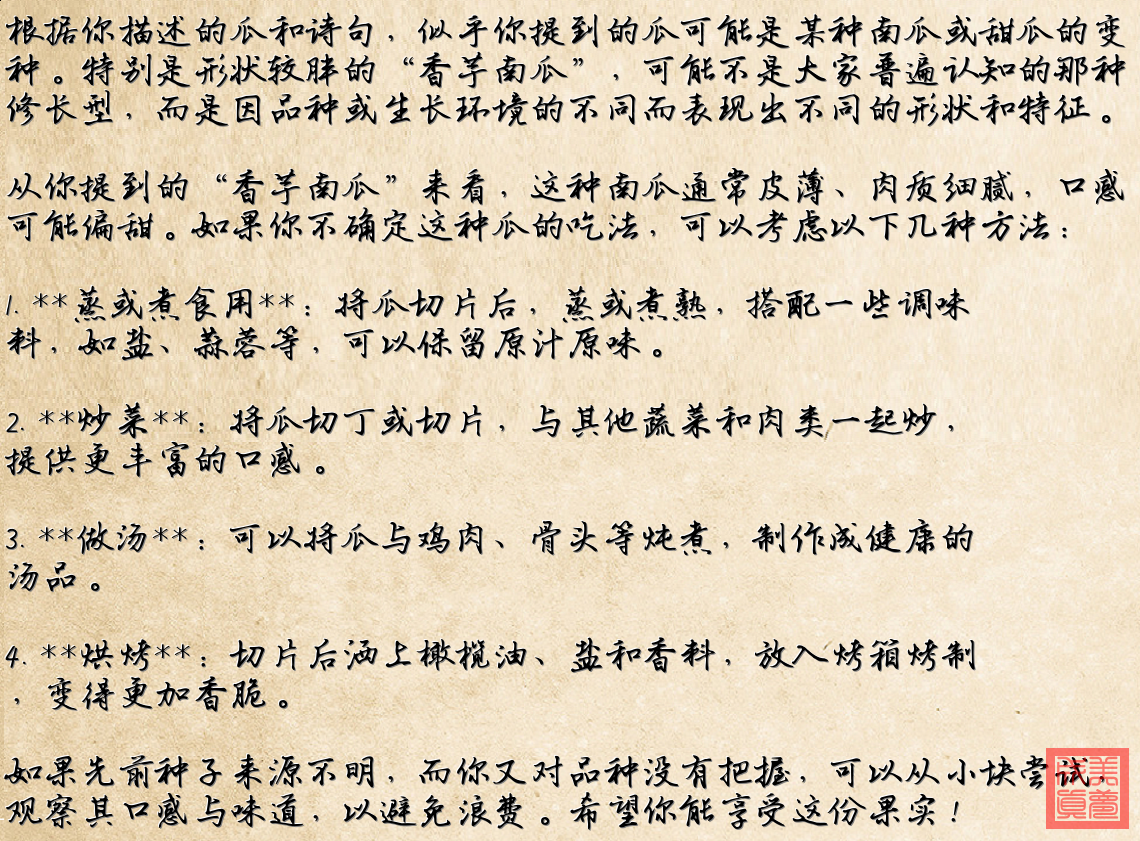 根据你描述的瓜和诗句，似乎你提到的瓜可能是某种南瓜或甜瓜的变
种。特别是形状较胖的“香芋南瓜”，可能不是大家普遍认知的那种
修长型，而是因品种或生长环境的不同而表现出不同的形状和特征。
从你提到的“香芋南瓜”来看，这种南瓜通常皮薄、肉质细腻，口感
可能偏甜。如果你不确定这种瓜的吃法，可以考虑以下几种方法：
1. **蒸或煮食用**：将瓜切片后，蒸或煮熟，搭配一些调味
料，如盐、蒜蓉等，可以保留原汁原味。
2. **炒菜**：将瓜切丁或切片，与其他蔬菜和肉类一起炒，
提供更丰富的口感。
3. **做汤**：可以将瓜与鸡肉、骨头等炖煮，制作成健康的
汤品。
4. **烘烤**：切片后洒上橄榄油、盐和香料，放入烤箱烤制
，变得更加香脆。
如果先前种子来源不明，而你又对品种没有把握，可以从小块尝试，
观察其口感与味道，以避免浪费。希望你能享受这份果实！